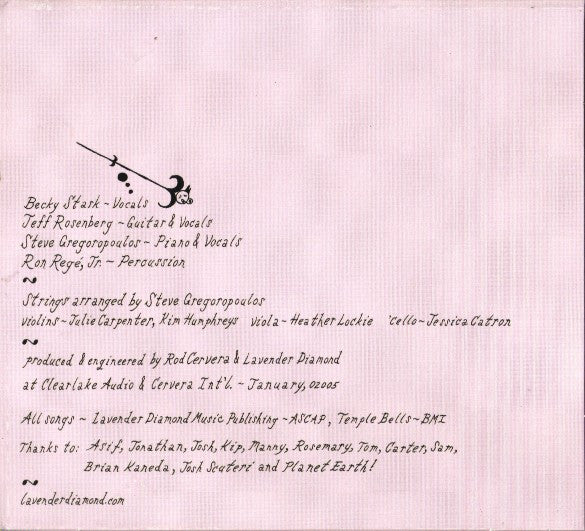 Becky Stark ~ Vocals
Jeff Rosenberg ~ Guitar & Vocals
Steve Gregoropoulos ~ Piano & Vocals
Ron Regé, Jr. ~ Percussion
~
Strings arranged by Steve Gregoropoulos
violins ~ Julie Carpenter, Kim Humphreys viola ~ Heather Lockie 'cello ~ Jessica Catron
~
produced & engineered by Rod Cervera & Lavender Diamond
at Clearlake Audio & Cervera Int'l. ~ January, 02005
All songs ~ Lavender Diamond Music Publishing ~ ASCAP, Temple Bells ~ BMI
Thanks to: Asif, Jonathan, Josh, Kip, Manny, Rosemary, Tom, Carter, Sam,
Brian Kaneda, Josh Scuteri and Planet Earth!
~
lavenderdiamond.com